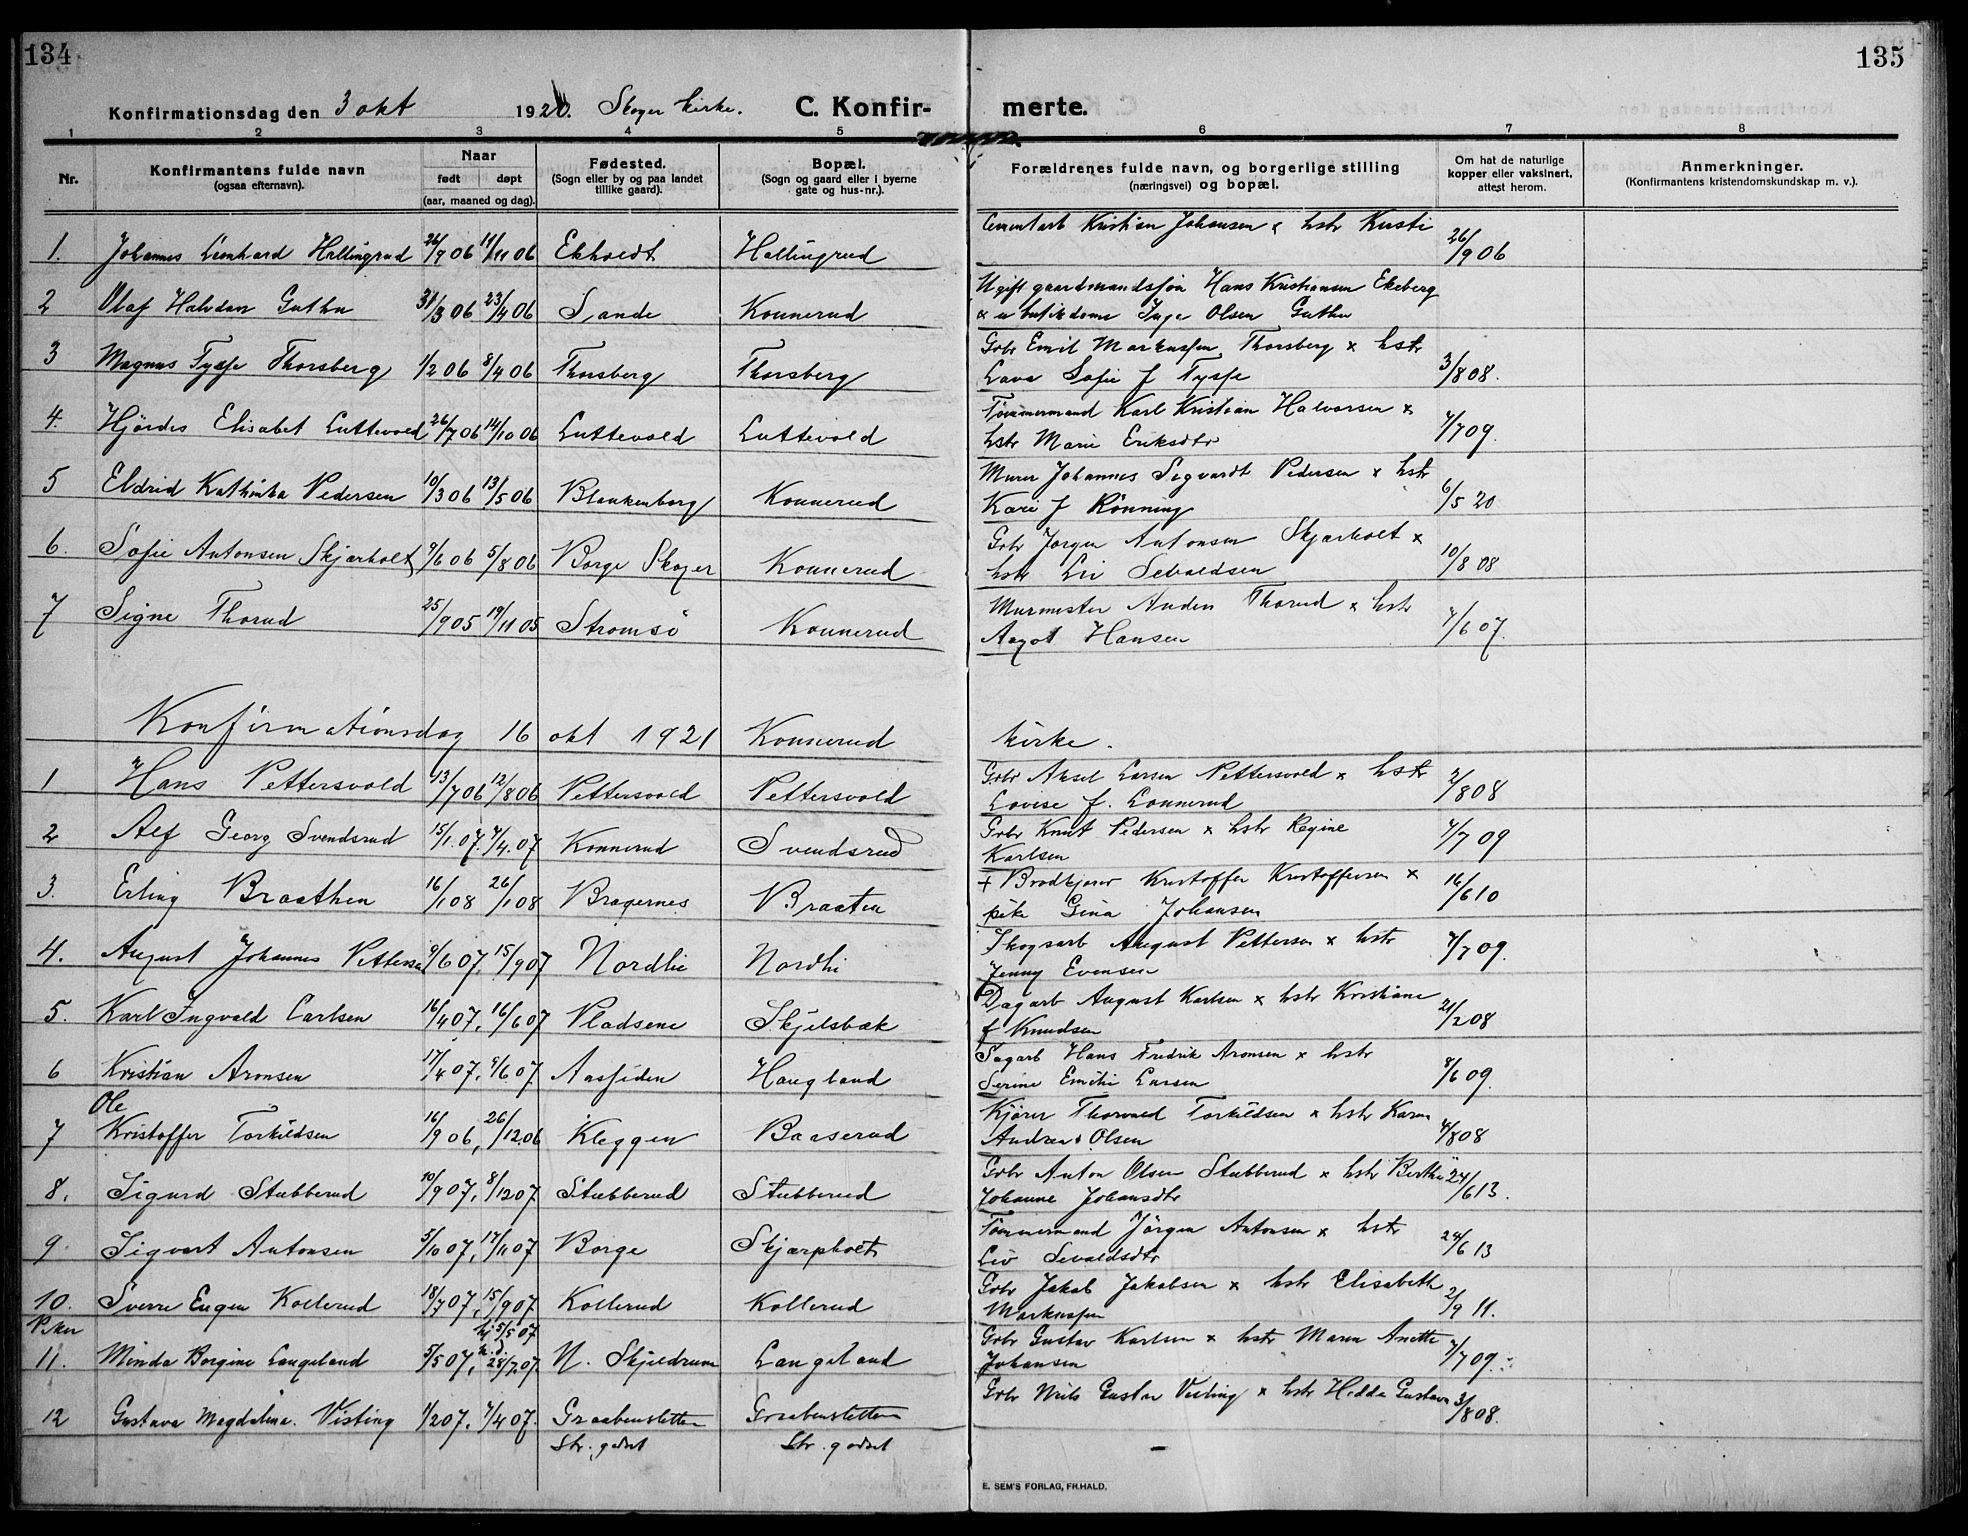 134
135
Konfirmationsdag den 3 okt 1920. Skoger kirke. C. Konfirmerte.
1 2 3 4 5 6 7 8
Nr. Konfirmantens fulde navn (ogsaa efternavn). Naar født døpt (aar, maaned og dag). Fødested. (Sogn eller by og paa landet tillike gaard). Bopæl. (Sogn og gaard eller i byerne gate og hus-nr.). Forældrenes fulde navn, og borgerlige stilling (næringsvei) og bopæl. Om hat de naturlige kopper eller vaksinert, attest herom. Anmerkninger. (Konfirmantens kristendomskundskap m. v.).
1. Johannes Leonhard Hallingrud 26/9 06 11/11 06 Ekholdt Hallingrud Cementarb Kristian Johansen & hstr Kristi 26/9 06
2 Olaf Halvdan Guthu 31/3 06 23/4 06 Sande Konnerud Ugift gaardmandssøn Hans Kristiansen Ekeberg
& u butikdame Inga Olsen Guthu
3 Magnus Tysse Thorsberg 1/2 06 8/4 06 Thorsberg Thorsberg Gbr Emil Markussen Thorsberg x hstr
Lava Sofie f Tysse 3/8 08.
4. Hjørdis Elisabet Luttevold 26/7 06 14/10 06 Luttevold Luttevold Tømmermand Karl Kristian Halvorsen x
hstr Marie Eriksdtr 4/7 09.
5 Eldrid Kathinka Pedersen 10/3 06 13/5 06 Blankenborg Konnerud Murer Johannes Sigvardt Pedersen x hstr
Kari f Rønning 6/5 20
6. Sofie Antonsen Skjærholt 4/6 06 5/8 06 Borge Skoger Konnerud Gbr Jørgen Antonsen Skjærholt x
hstr Liv Sevaldsen 10/8 08
7 Signe Thorud 25/9 05 19/11 05 Strømsø Konnerud Murmester Anden Thorud x hstr
Aagot Hansen 4/6 07.
Konfirmationsdag 16 okt 1921 Konnerud kirke.
1 Hans Pettersvold 13/7 06 12/8 06 Pettersvold Pettersvold Gbr Aksel Larsen Pettersvold x hstr
Lovise f. Lonnerud 2/8 08
2 Alf Georg Svendsrud 15/1. 07. 4/4. 07 Konnerud Svendsrud Gbr Knut Pedersen x hstr Regine
Karlsen 4/7 09
3. Erling Braathen 16/1 08 26/1 08 Bragernes Braaten + Brødkjører Kristoffer Kristoffersen x
pike Gina Johansen 16/6 10
4. August Johannes Pettersen 9/6 07, 15/9 07 Nordlie Nordli Skogsarb August Pettersen x hstr
Jenny Evensen 4/7 09.
5. Karl Ingvald Carlsen 16/4 07, 16/6 07 Pladsene Skjelsbæk Dagarb August Karlsen x hstr Kristiane
f Knudsen 21/2 08
6 Kristian Aronsen 17/4 07, 9/6 07. Aassiden Haugland Sagarb Hans Fredrik Aronsen x hstr
Serine Emilie Larsen 8/6 09.
Ole
7 Kristoffer Torkildsen 16/9 06, 26/12 06 Kleggen Baaserud Kjører Thorvald Torkildsen x hstr Karen
Andrea Olsen 4/8 08
8. Sigurd Stubberud 10/9 07, 8/12 07 Stubberud Stubberud Gbr Anton Olsen Stubberud x hstr Berthe
Johanne Johansdtr 24/6 13.
9. Sigvart Antonsen 5/10 07, 17/11 07 Borge Skjærpholt Tømmermand Jørgen Antonsen x hstr
Liv Sevaldsdtr 24/6 13
10. Sverre Eugen Kollerud 18/7 07, 15/9 07 Kollerud Kollerud Gbr Jakob Jakobsen x hstr Elisabeth
Markussen 2/9 11.
Piker
hj 5/5 07
11. Minda Borgine Langeland 5/5 07, k. d. 28/7 07. N. Skjeldrum Langeland Gbr Gustav Karlsen x hstr Maren Anette
Johansen 4/7 09.
12 Gustava Magdalina. Visting 1/2 07. 4/4 07. Graabensletten Graabensletten Gbr Nils Gustav Visting x hstr Hedda Gustava 3/8 08.
Str. godset Str. godset
E. SEM'S FORLAG, FR.HALD.